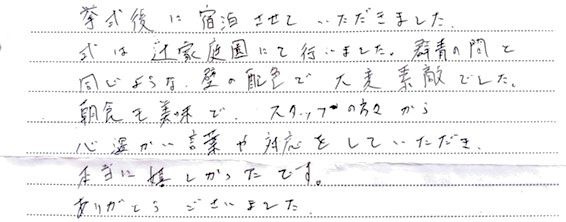 挙式後に宿泊させていただきました.
式は辻家庭園にて行いました。群青の間と
同じような、壁の配色で大変素敵でした。
朝食も美味で、スタッフの方々から
心温かい言葉や対応をしていただき、
本当に嬉しかったです。
ありがとうございました.